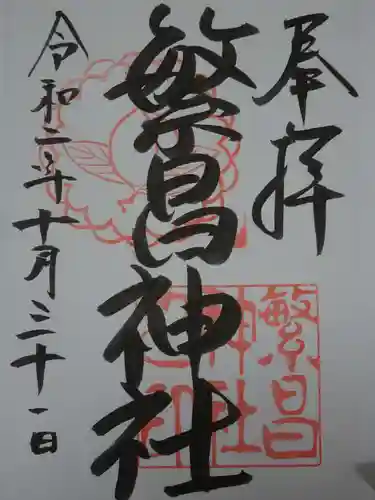 奉拝
繁昌神社
令和二年十月三十一日
繁昌
神社